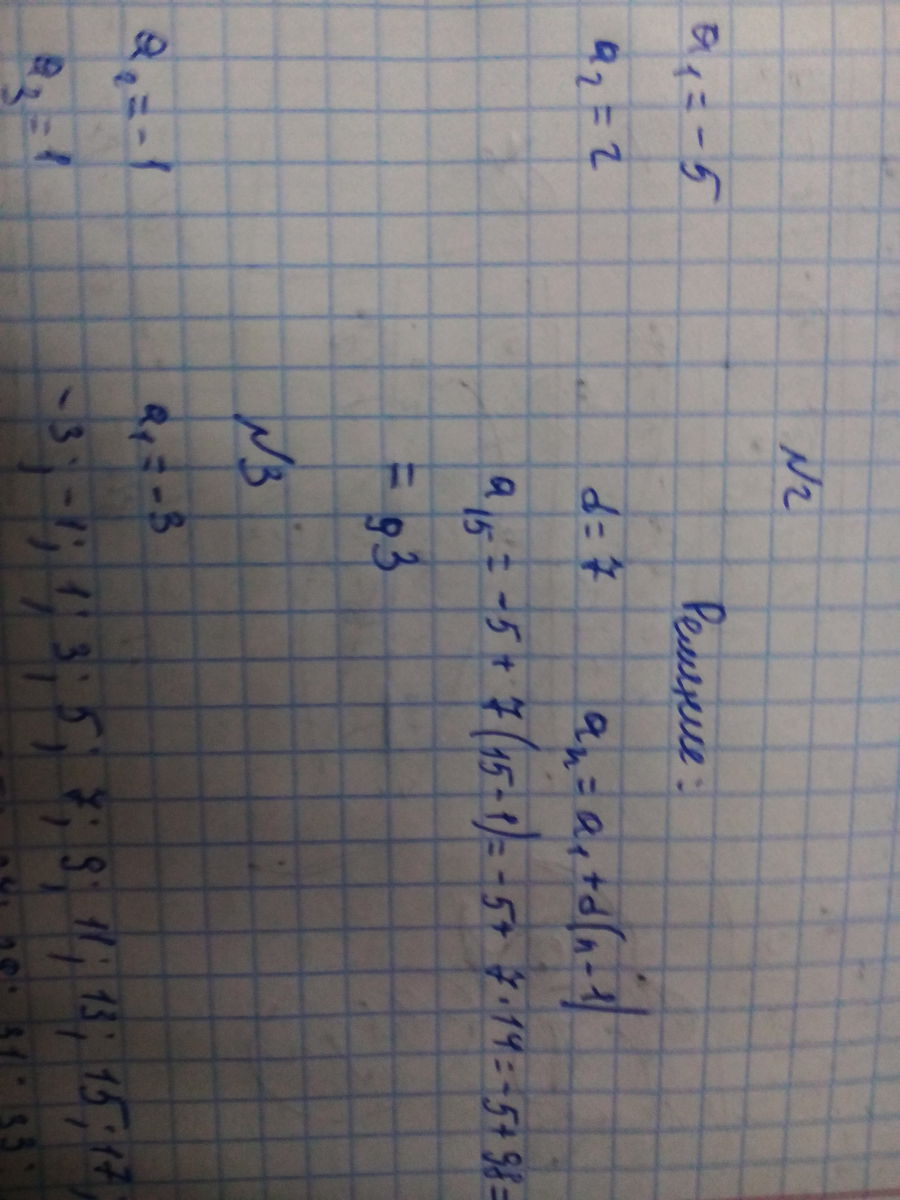 №2
a₁ = -5 Решение:
a₂ = 2 d = 7 aₙ = a₁ + d(n-1)
a₁₅ = -5 + 7(15-1) = -5 + 7·14 = -5 + 98 =
= 93
№3
a₂ = -1 a₁ = -3
a₃ = 1 -3; -1; 1; 3; 5; 7; 9; 11; 13; 15; 17;
31; 33;